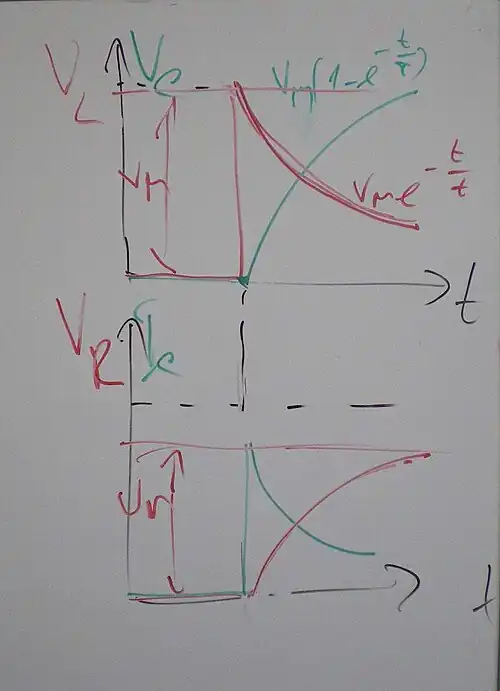 V_L V_C V_M(1-e^{-t/τ})
V_M V_M e^{-t/t}
t
V_R V_C
V_M
t